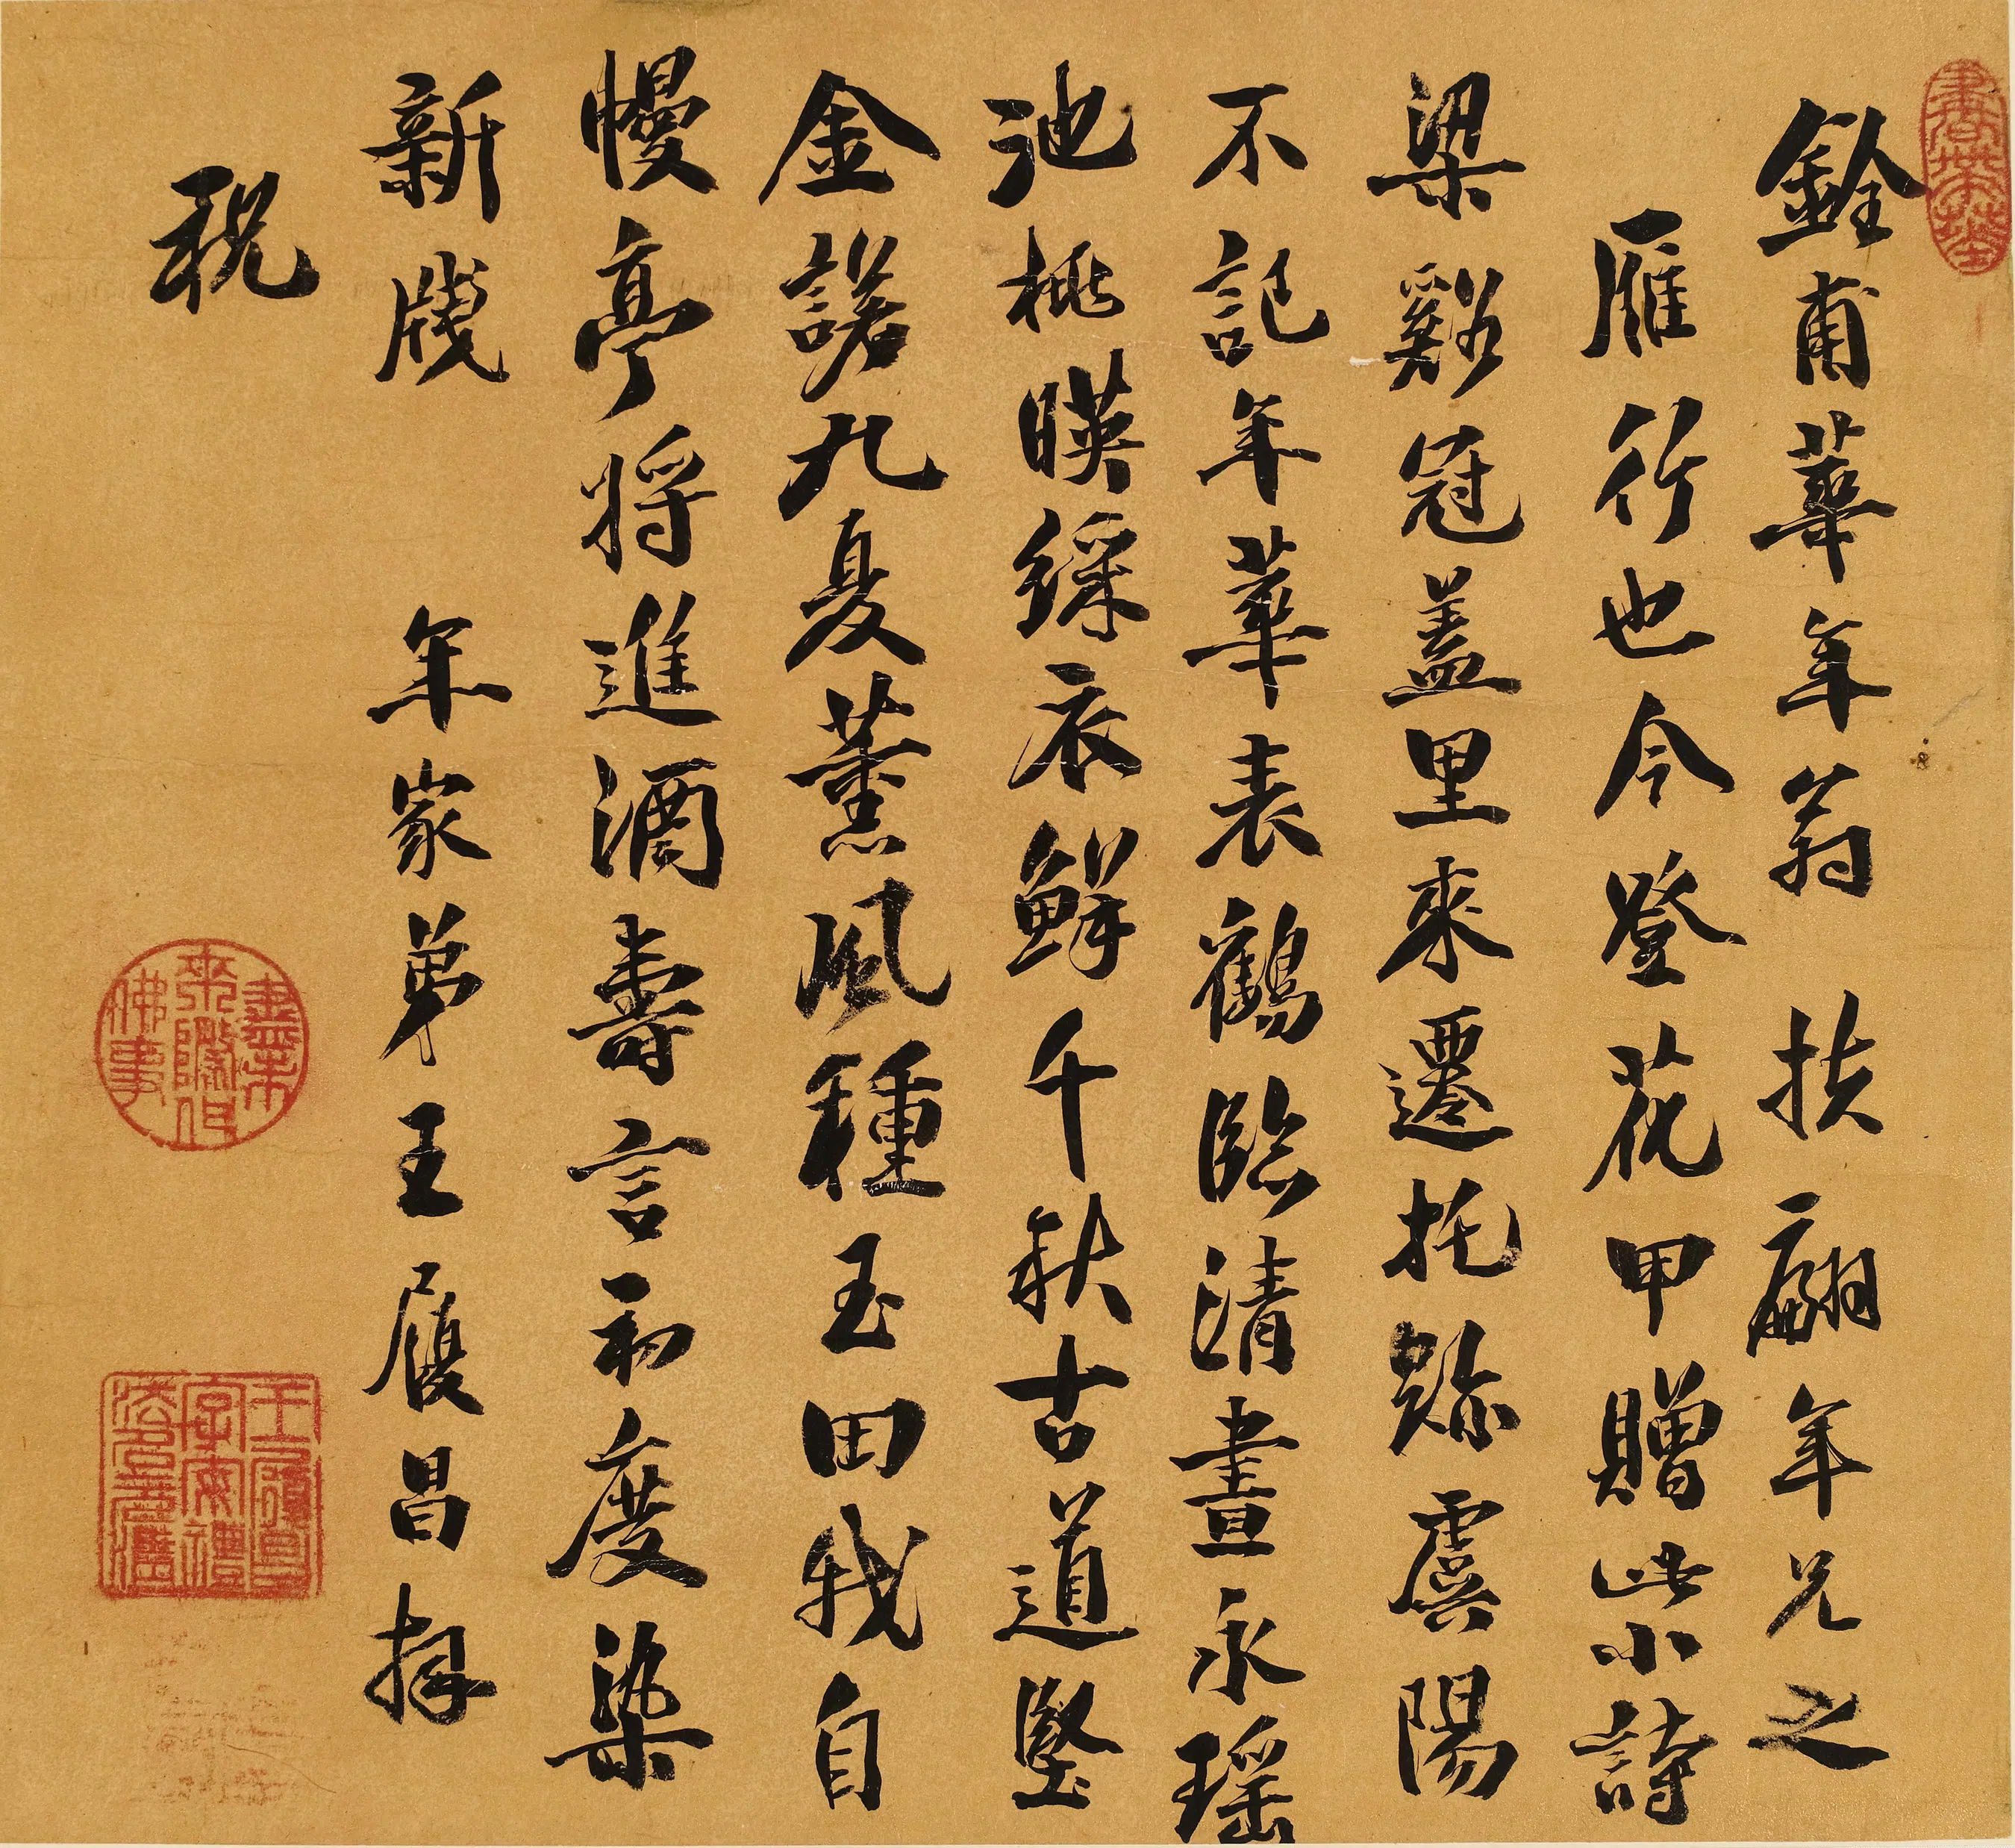 銓甫華年翁 扶翮年兄之
雁行也今登花甲贈此小詩
梁谿冠蓋里來遷托跡虞陽
不記年華表鶴臨清晝永瑶
池桃暎綵衣鮮千秋古道堅
金諾九夏薰風種玉田我自
幔亭將進酒壽言初度染
新牋 年家弟王履昌拜
祝
盡未來際作佛事